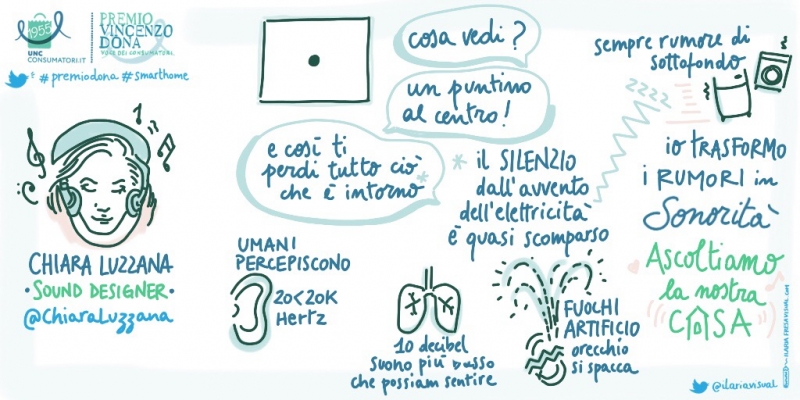 1955
UNC
CONSUMATORI.IT
PREMIO
VINCENZO
DONA
VOCE DEI CONSUMATORI
# premiodona # smarthome
CHIARA LUZZANA
• SOUND DESIGNER •
@ChiaraLuzzana
cosa vedi?
un puntino
al centro!
e così ti
perdi tutto ciò
che è intorno
* il SILENZIO
dall'avvento
dell'elettricità
è quasi scomparso
sempre rumore di
sottofondo
zzzz
io TRASFORMO
i RUMORI in
Sonorità
Ascoltiamo
la nostra
CASA
UMANI
PERCEPISCONO
20<20K
Hertz
10 decibel
suono più basso
che possiam sentire
FUOCHI
ARTIFICIO
orecchio
si spacca
@ilariavisual